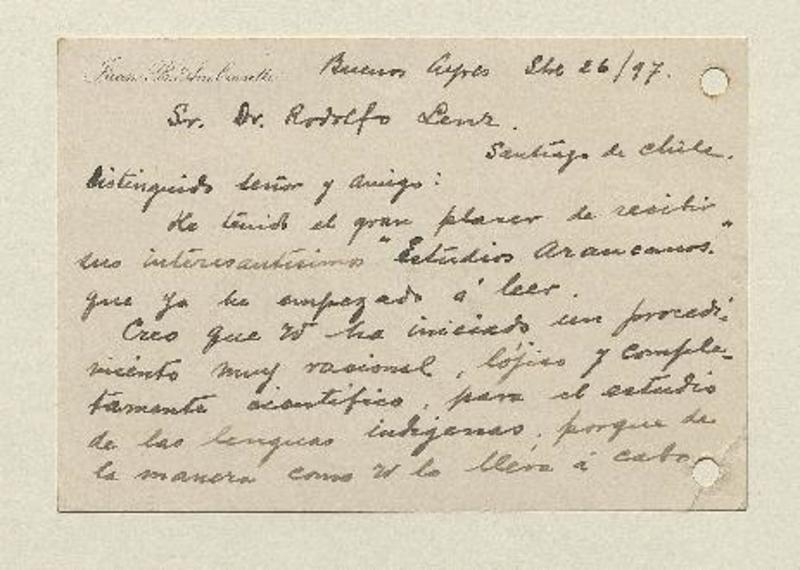 Juan B. Ambrosetti
Buenos Ayres Sbe 26/97.
Sr. Dr. Rodolfo Lenz.
Santiago de Chile.
Distinguido señor y amigo:
He tenido el gran placer de recibir
sus interesantísimos "Estudios Araucanos."
que ya he empezado á leer.
Creo que Vd ha iniciado un procedi-
miento muy racional, lójico y comple-
tamente científico, para el estudio
de las lenguas indígenas, porque de
la manera como Vd lo lleva á cabo